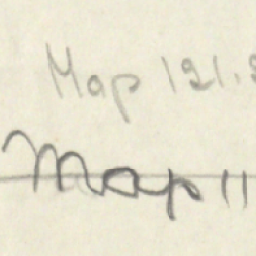 Map 121.
Map 11